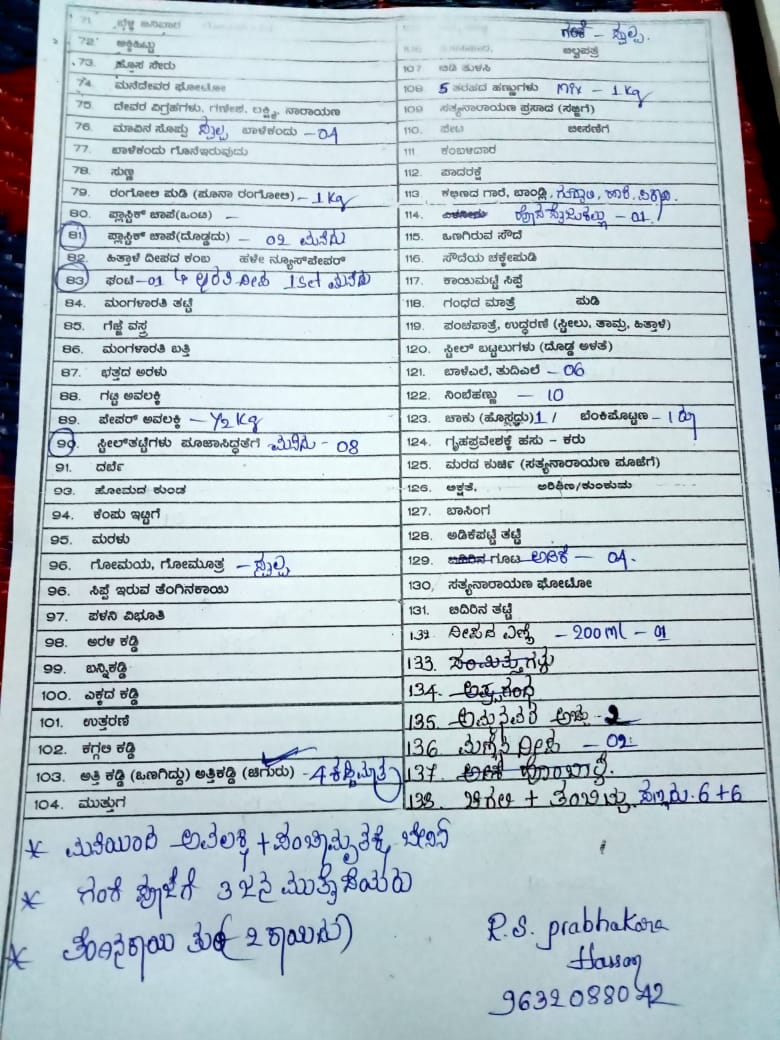 71. ಬೆಳ್ಳಿ ಜನಿವಾರ
72. ಅಕ್ಕಿಹಿಟ್ಟು
73. ಹೊಸ ಸೇರು
74. ಮನೆದೇವರ ಫೋಟೋ
75. ದೇವರ ವಿಗ್ರಹಗಳು, ಗಣೇಶ, ಲಕ್ಷ್ಮಿ, ನಾರಾಯಣ
76. ಮಾವಿನ ಸೊಪ್ಪು ಸ್ವಲ್ಪ ಬಾಳೆಕಂದು - 04
77. ಬಾಳೆಕಂದು ಗೊನೆಇರುವುದು
78. ಸುಣ್ಣ
79. ರಂಗೋಲಿ ಪುಡಿ (ಪೂನಾ ರಂಗೋಲಿ) - 1 Kg
80. ಪ್ಲಾಸ್ಟಿಕ್ ಚಾಪೆ(ಒಂಟಿ) -
81. ಪ್ಲಾಸ್ಟಿಕ್ ಚಾಪೆ(ದೊಡ್ಡದು) - 02 ಮನೆದು
82. ಹಿತ್ತಾಳೆ ದೀಪದ ಕಂಬ ಹಳೇ ನ್ಯೂಸ್‌ಪೇಪರ್
83. ಘಂಟೆ - 01 ದೀಪ 1 Set ಮನೆದು
84. ಮಂಗಳಾರತಿ ತಟ್ಟೆ
85. ಗೆಜ್ಜೆ ವಸ್ತ್ರ
86. ಮಂಗಳಾರತಿ ಬತ್ತಿ
87. ಭತ್ತದ ಅರಳು
88. ಗಟ್ಟಿ ಅವಲಕ್ಕಿ
89. ಪೇಪರ್ ಅವಲಕ್ಕಿ - 1/2 Kg
90. ಸ್ಟೀಲ್‌ತಟ್ಟೆಗಳು ಪೂಜಾಸಿದ್ಧತೆಗೆ ಮನೆದು - 08
91. ದರ್ಬೆ
93. ಹೋಮದ ಕುಂಡ
94. ಕೆಂಪು ಇಟ್ಟಿಗೆ
95. ಮರಳು
96. ಗೋಮಯ, ಗೋಮೂತ್ರ - ಸ್ವಲ್ಪ
96. ಸಿಪ್ಪೆ ಇರುವ ತೆಂಗಿನಕಾಯಿ
97. ಪಳನಿ ವಿಭೂತಿ
98. ಅರಳಿ ಕಡ್ಡಿ
99. ಬನ್ನಿಕಡ್ಡಿ
100. ಎಕ್ಕದ ಕಡ್ಡಿ
101. ಉತ್ತರಣೆ
102. ಕಗ್ಗಲಿ ಕಡ್ಡಿ
103. ಅತ್ತಿ ಕಡ್ಡಿ (ಒಣಗಿದ್ದು) ಅತ್ತಿಕಡ್ಡಿ (ಚಿಗುರು) - 4 ಕಡ್ಡಿ ಮಾತ್ರ
104. ಮುತ್ತುಗ
ಗಂಕೆ - ಸ್ವಲ್ಪ.
ಬಿಲ್ವಪತ್ರೆ
107. ಬಿಡಿ ತುಳಸಿ
108. 5 ತರಹದ ಹಣ್ಣುಗಳು Mix - 1 Kg
109. ಸತ್ಯನಾರಾಯಣ ಪ್ರಸಾದ (ಸಜ್ಜಿಗೆ)
110. ಪೇಟ ಬೀಸಣಿಗೆ
111. ಕಂಬಳಿದಾರ
112. ಪಾದರಕ್ಷೆ
113. ಕಬ್ಬಿಣದ ಗಾರೆ, ಬಾಂಡ್ಲಿ, ಗುದ್ದಲಿ, ಹಾರೆ, ಪಿಕಾಸಿ.
114. ಎಳನೀರು - 01
115. ಒಣಗಿರುವ ಸೌದೆ
116. ಸೌದೆಯ ಚಕ್ಕೇಪುಡಿ
117. ಕಾಯಿಮಟ್ಟೆ ಸಿಪ್ಪೆ
118. ಗಂಧದ ಮಾತ್ರೆ ಪುಡಿ
119. ಪಂಚಪಾತ್ರೆ, ಉದ್ಧರಣೆ (ಸ್ಟೀಲು, ತಾಮ್ರ, ಹಿತ್ತಾಳೆ)
120. ಸ್ಟೀಲ್ ಬಟ್ಟಲುಗಳು (ದೊಡ್ಡ ಅಳತೆ)
121. ಬಾಳೆಎಲೆ, ತುದಿಎಲೆ - 06
122. ನಿಂಬೆಹಣ್ಣು - 10
123. ಚಾಕು (ಹೊಸ್ತದು) 1 / ಬೆಂಕಿಪೊಟ್ಟಣ - 1
124. ಗೃಹಪ್ರವೇಶಕ್ಕೆ ಹಸು - ಕರು
125. ಮರದ ಕುರ್ಚಿ (ಸತ್ಯನಾರಾಯಣ ಪೂಜೆಗೆ)
126. ಅಕ್ಷತೆ, ಅರಿಶಿಣ/ಕುಂಕುಮ
127. ಬಾಸಿಂಗ
128. ಅಡಿಕೆಪಟ್ಟೆ ತಟ್ಟೆ
129. ಬಿದಿರಿನ ಗೂಟ ಅಡಿಕೆ - 04.
130. ಸತ್ಯನಾರಾಯಣ ಫೋಟೋ
131. ಬಿದಿರಿನ ತಟ್ಟೆ
132 ದೀಪದ ಎಣ್ಣೆ - 200 ml - 01
133. ಸಂಮಿತ್ತುಗಳು
134. ಅಷ್ಟಗಂಧ
135. ಅಮ್ಮನವರ ಅಚ್ಚು - 2
136 ಮಣ್ಣಿನ ದೀಪ - 02
137. ಅಡಿಕೆ ಹೊಂಬಾಳೆ.
138. ಚಿಗಳಿ + ತಂಬಿಟ್ಟು 6 + 6
* ಮನೆಯಿಂದ ಅವಲಕ್ಕಿ + ಪಂಚಾಮೃತಕ್ಕೆ
* ಗಂಗೆ ಪೂಜೆಗೆ 3 ಜನ ಮುತ್ತೈದೆಯರು
* ತೆಂಗಿನಕಾಯಿ ತುರಿ (2 ಕಾಯಿದು)
R.S. prabhakara
Hassan
9632088042